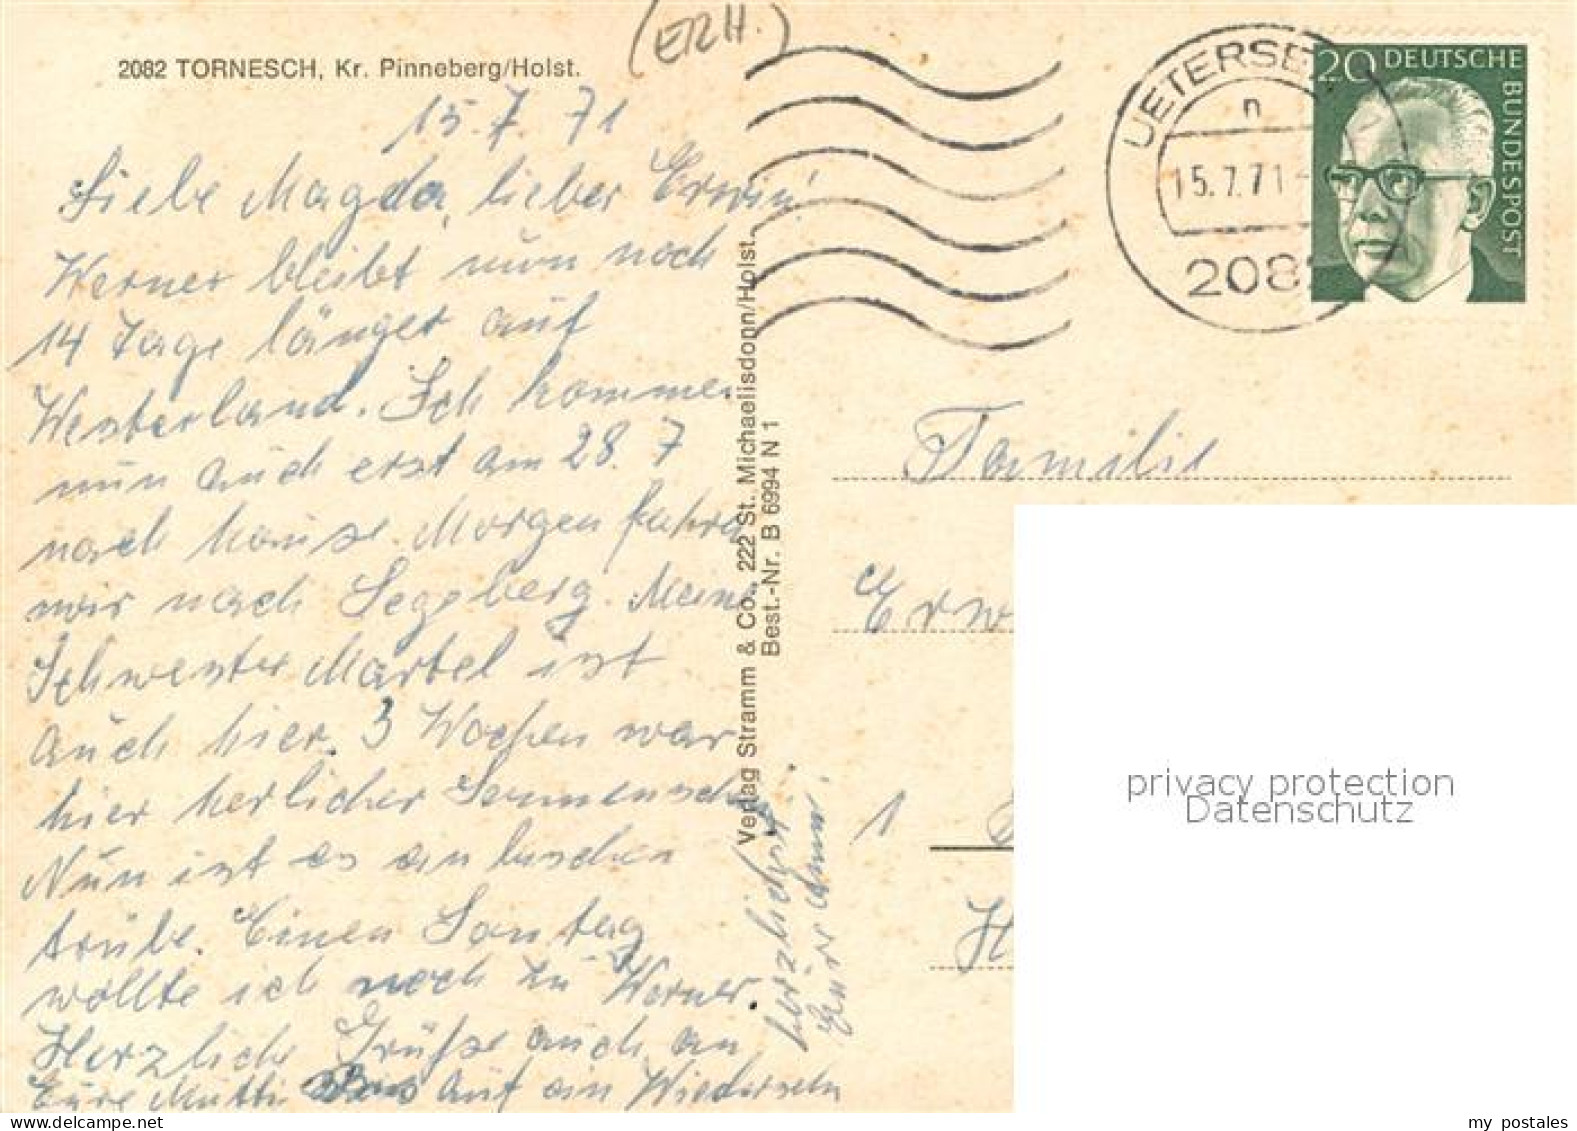 (ERH.)
2082 TORNESCH, Kr. Pinneberg/Holst.
15.7.71
Liebe Magda, lieber Erwin!
Werner bleibt nun noch
14 Tage länger auf
Westerland. Ich komme
nun auch erst am 28. 7
nach hause. Morgen fahren
wir nach Segeberg. Meine
Schwester Martel ist
auch hier. 3 Wochen war
hier herlicher Sonnenschein
Nun ist es ein bischen
trübe. Einen Sontag
wollte ich noch zu Werner.
Herzliche Grüße auch an
Eure Mutti Bis auf ein Wiedersehn
herzlichst
Eure Anni.
Verlag Stramm & Co., 222 St. Michaelisdonn/Holst.
Best.-Nr. B 6994 N 1
UETERSE
n
15.7.71
208
20 DEUTSCHE
BUNDESPOST
Familie
Erw
1
H
privacy protection
Datenschutz
my postales